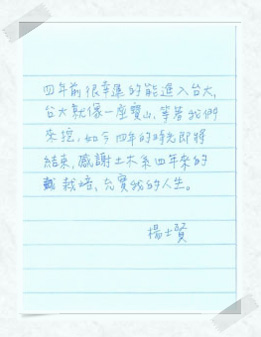 四年前很幸運的能進入台大,
台大就像一座寶山,等著我們
來挖,如今四年的時光即將
結束,感謝土木系四年來的
栽培,充實我的人生。
楊士賢